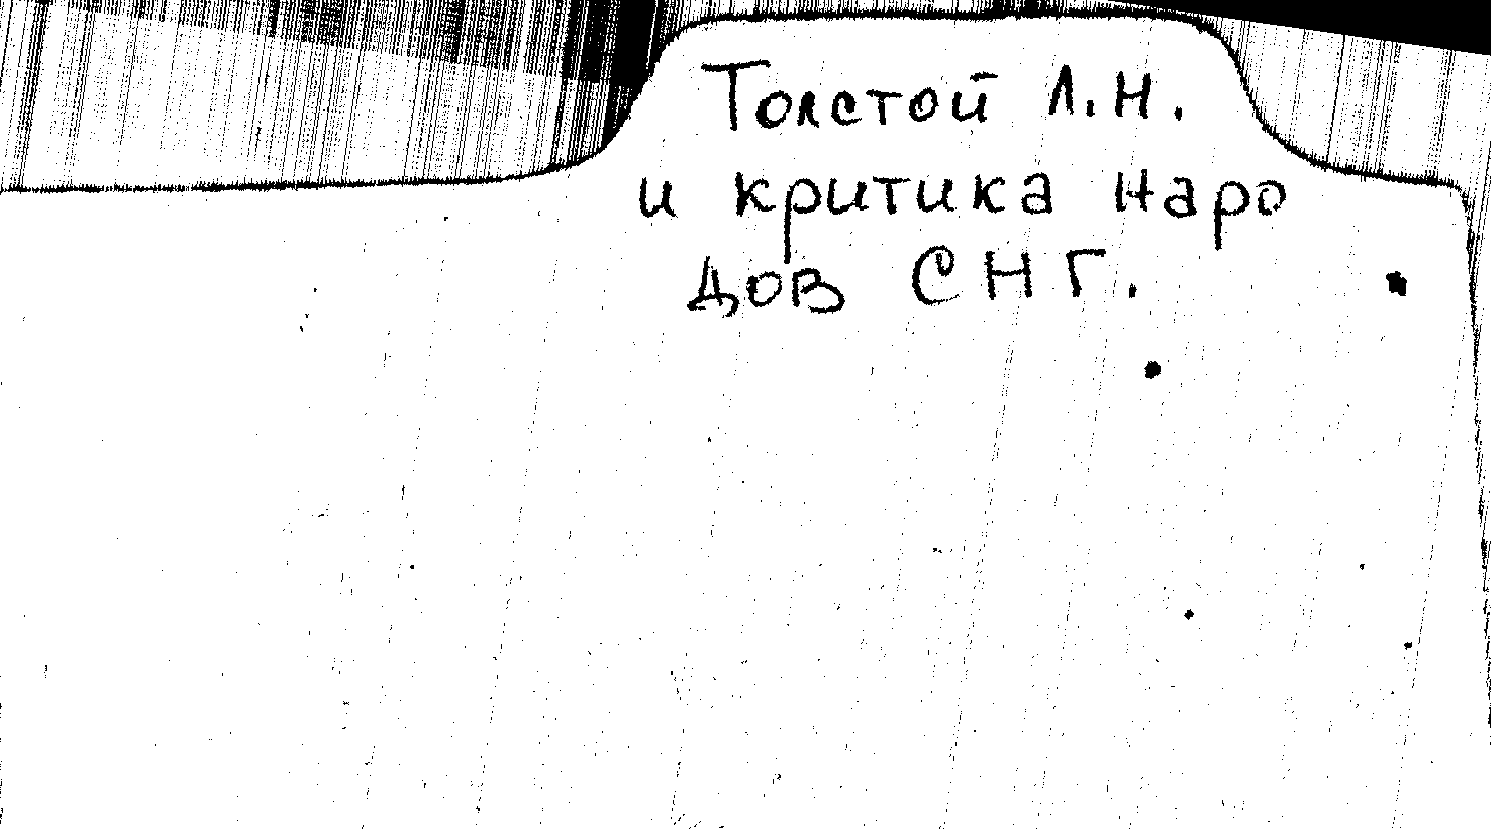 Толстой Л.Н.
и критика наро
дов СНГ.